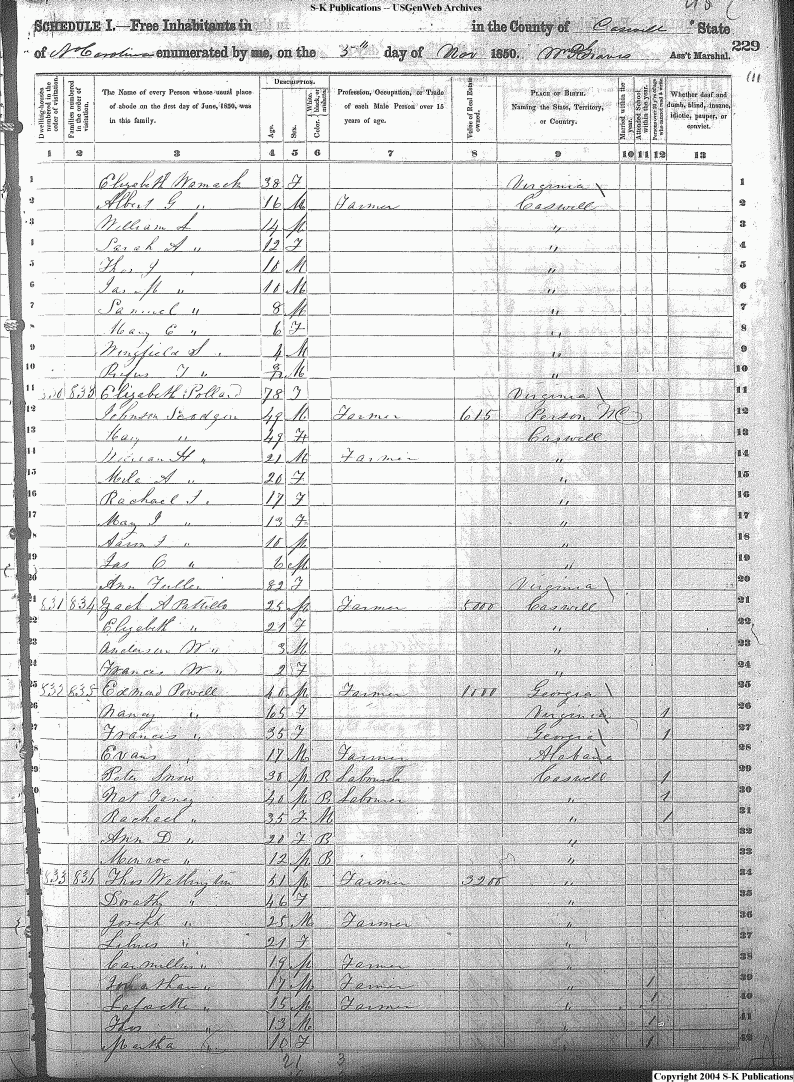 S-K Publications -- USGenWeb Archives
SCHEDULE I.—Free Inhabitants in in the County of Caswell State
of N Carolina enumerated by me, on the 5th day of Nov 1850. Wm Graves Ass't Marshal. 229
Dwelling-houses numbered in the order of visitation.
Families numbered in the order of visitation.
The Name of every Person whose usual place of abode on the first day of June, 1850, was in this family.
DESCRIPTION.
Age.
Sex.
Color, White, black, or mulatto.
Profession, Occupation, or Trade of each Male Person over 15 years of age.
Value of Real Estate owned.
PLACE OF BIRTH. Naming the State, Territory, or Country.
Married within the year.
Attended School within the year.
Persons over 20 y'rs of age who cannot read & write.
Whether deaf and dumb, blind, insane, idiotic, pauper, or convict.
1 2 3 4 5 6 7 8 9 10 11 12 13
1 Elizabeth Womack 38 F Virginia 1
2 Albert G " 16 M Farmer Caswell 2
3 William A 14 M " 3
4 Sarah A " 12 F " 4
5 Thos J " 10 M " 5
6 Jas M " 10 M " 6
7 Samuel " 8 M " 7
8 Mary E " 6 F " 8
9 Wingfield S " 4 M " 9
10 Rufus T " M " 10
11 830 833 Elizabeth Pollard 78 F Virginia 11
12 Johnson 49 M Farmer 615 Person NC 12
13 Mary " 49 F Caswell 13
14 William H " 21 M Farmer " 14
15 Mila A " 20 F " 15
16 Rachael J. 17 F " 16
17 May J " 13 F " 17
18 Aaron F " 10 M " 18
19 Jas C " 6 M " 19
20 Ann Fuller 82 F Virginia 20
21 831 834 Zack A Patillo 25 M Farmer 5000 Caswell 21
22 Elizabeth " 21 F " 22
23 Anderson W " 3 M " 23
24 Francis W " 2 F " 24
25 832 835 Edmund Powell 40 M Farmer 1000 Georgia 25
26 Nancy " 65 F Virginia 1 26
27 Francis " 35 F Georgia 1 27
28 Evans " 17 M Farmer Alabama 28
29 Peter Snow 30 M B Labourer Caswell 1 29
30 Nat 40 M B Labourer " 1 30
31 Rachael " 35 F M " 1 31
32 Ann D " 20 F B " 32
33 Monroe " 12 M B " 33
34 833 836 Thos Watlington 51 M Farmer 3200 " 34
35 Dorathy " 46 F " 35
36 Joseph " 25 M Farmer " 36
37 " 21 F " 37
38 " 19 M Farmer " 38
39 Jonathan " 17 M Farmer " 1 39
40 Lafayette " 15 M Farmer " 1 40
41 Thos " 13 M " 1 41
42 Martha " 10 F " 1 42
21 3
Copyright 2004 S-K Publications